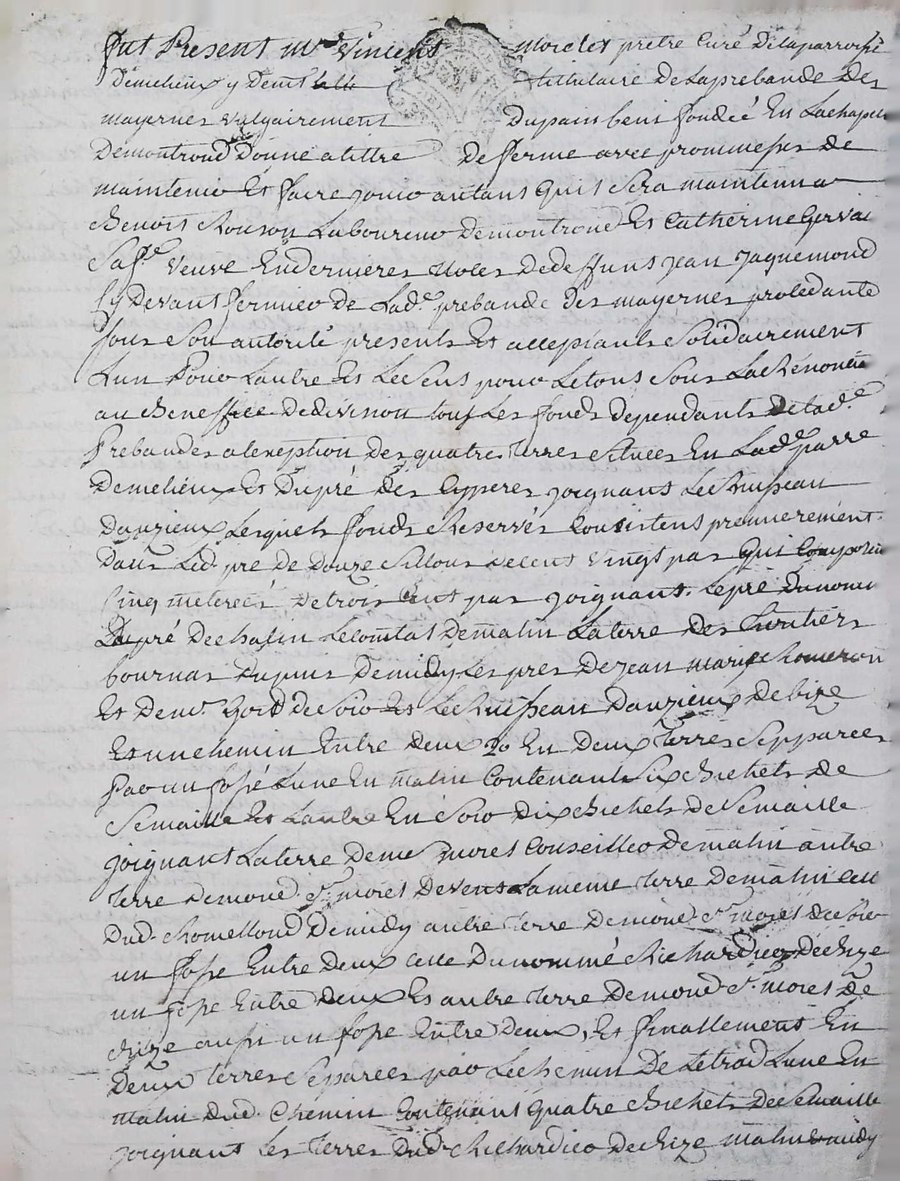 fut Present mre Vincent morclet pretre Curé delaparroche
Demelieux y Demt titulaire de Laprebande des
mayernes vulgairement Dupain benit fondée En Lachapelle
Demontrond Donne a tittre de fferme avec prommesses de
maintenir Et faire Jouir autant quil Sera maintenu a
Benoit Rouson Laboureur demontrond Et Catherine Gervai
Sa fe. Veuve Endernieres Noces dedeffunt Jean Jaquemond
Cy Devant fermier de Lade. prebande des mayernes procedante
sous Son autorité presents Et acceptants Solidairement
Lun Pour Lautre Et LeSeul pour Letous Sous La Rénoncia
au Beneffice dedivision tous Les fonds dependants delade.
Prebande a lexeption des quatre Terres Situées En Lade. parre
Demelieux Et Dupré des joignant Le Ruisseau
Dauzieux Lesquels fonds Reservés Consistent premierement
Dans Led. pré de Douze Sillons decent vingt pas qui Compose
Cinq metereés detrois Cent pas Joignant Le pré Dunommé
Dupré Le Comtat Dematin La terre des heritiers
bournat Dupuis Demidy Les prés de Jean marie Chomeron
Et Demr. Goid de Soir Et Le Ruisseau Dauzieux de bize
Et un chemin Entre deux 2o En Deux Terres Sepparées
Par un fossé Lune En matin Contenant Six Bichets de
Semaille Et Lautre En Soir dix Bichets de Semaille
Joignant La terre deme mores Conseiller Dematin autre
Terre demond. Sr. mores devent La meme Terre Dematin celle
Dud. Chomellond Demidy autre Terre Demond. Sr. mores de Soir
un fossé Entre Deux celle Dunommé Richardier de bize
un fossé Entre deux Et autre Terre Demond. Sr. mores de
bize aussi un fossé Entre Deux, Et finallement En
Deux Terres Separées par Le chemin De Letrad Lune En
matin dud. Chemin Contenant quatre Bichets de Semaille
Joignant Les Terres Dud. Richardier de bize matin midy